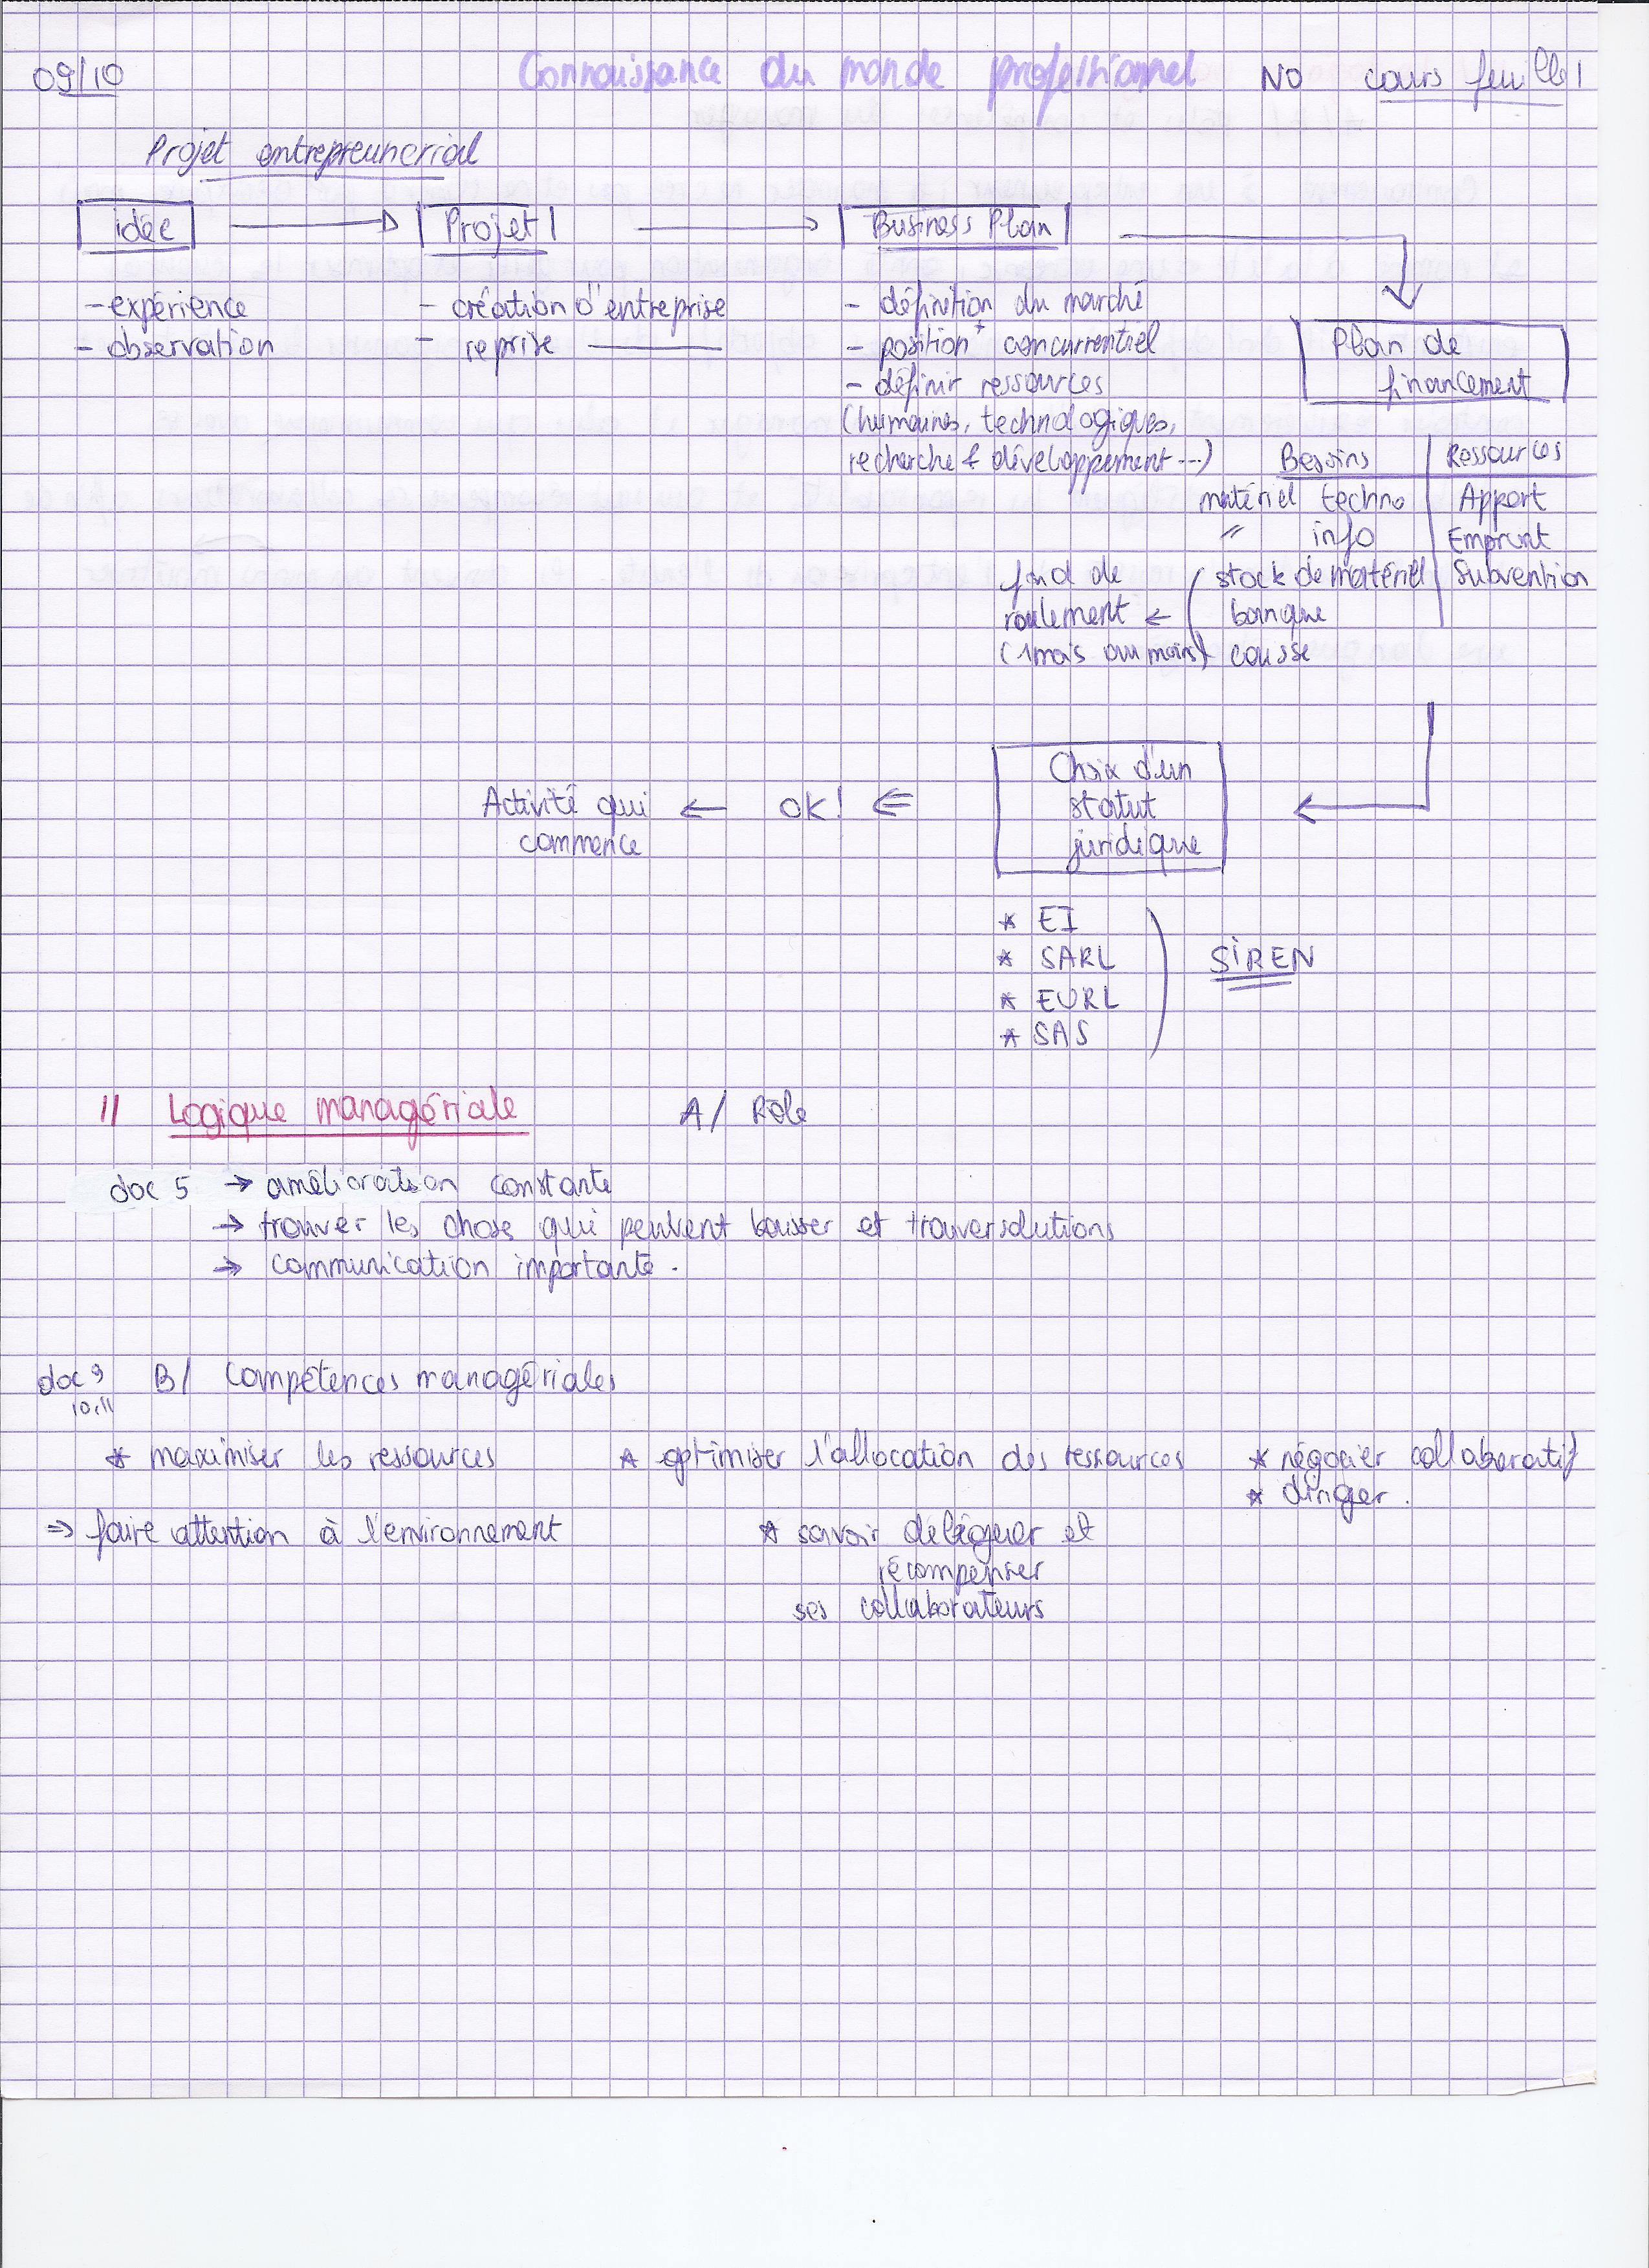 09/10 Connaissance du monde professionnel NO cours feuille 1
Projet entrepreunerial
idée → Projet → Business Plan
- expérience
- observation
- création d'entreprise
- reprise ———
- définition du marché
- position+ concurrentiel
- définir ressources
(humaines, technologiques,
recherche & développement ...)
Plan de
financement
Besoins | Ressources
matériel techno | Apport
〃 info | Emprunt
stock de matériel | Subvention
banque
caisse
fond de
roulement ←
(1 mois au moins)
Choix d'un
statut
juridique
⇐ OK! ← Activité qui
commence
* EI
* SARL
* EURL
* SAS
SIREN
II Logique managériale A/ Rôle
doc 5 → amélioration constante
→ trouver les chose qui peuvent baisser et trouver solutions
→ communication importante.
doc 9 B/ Compétences managériales
10,11
* maximiser les ressources * optimiser l'allocation des ressources * négocier collaboratif
* diriger.
⇒ faire attention à l'environnement * savoir déléguer et
récompenser
ses collaborateurs